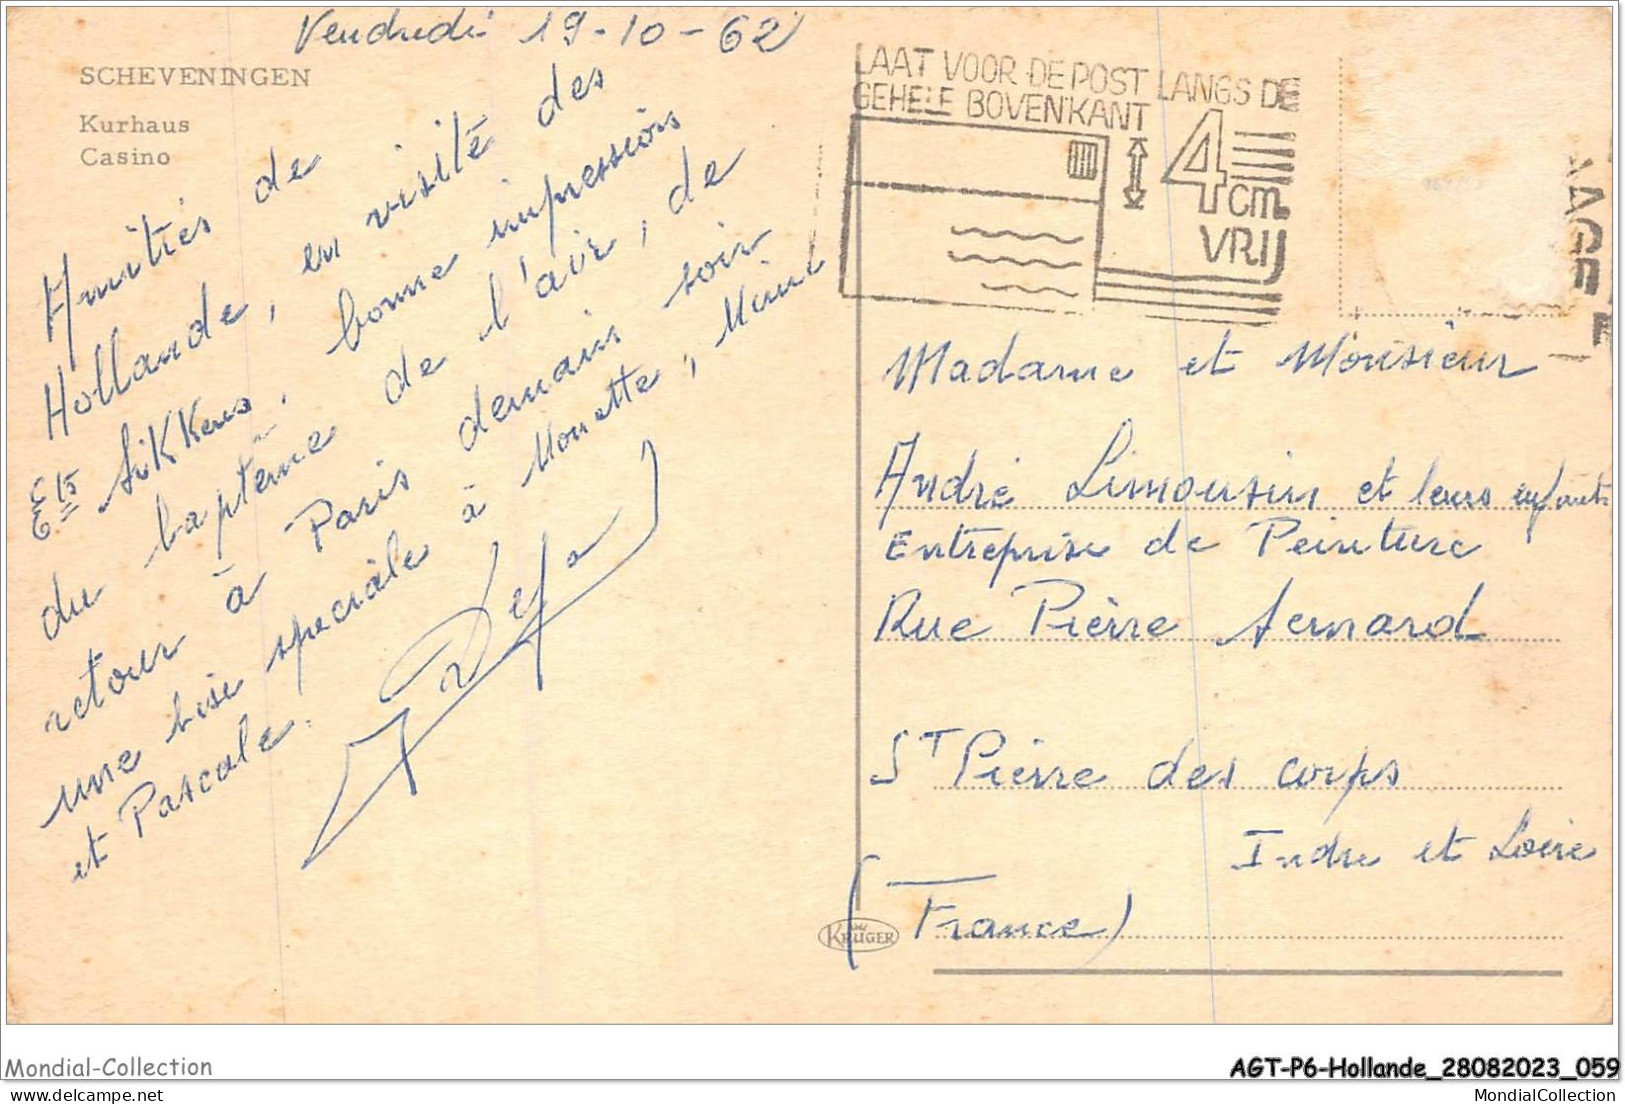 Vendredi 19-10-62
SCHEVENINGEN
Kurhaus
Casino
Amitiés de
Hollande, en visite des
Ets Sikkens, bonne impressions
du baptême de l'air, de
retour à Paris demain soir
une bise speciale à Mouette, Mimi
et Pascale.
LAAT VOOR DE POST LANGS DE
GEHELE BOVENKANT
4
cm.
VRIJ
Madame et Monsieur
André Limousin et leurs enfants
Entreprise de Peinture
Rue Pierre Semard
ST Pierre des corps
Indre et Loire
(France)
KRÜGER
Mondial-Collection
AGT-P6-Hollande_28082023_059
delcampe.net
MondialCollection